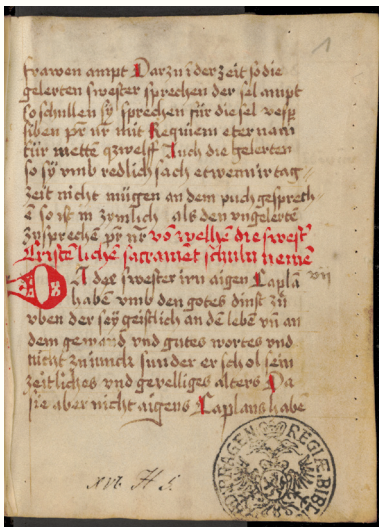 1
frawen ampt Darzu i der zeit so die
gelerten swester sprechen der sel ampt
So schullen sÿ sprechen für die sel vesp
siben pr nr mit Requiem eternam
für mettē qzwelff Auch die gelerten
so sÿ vmb redlich sach etwenn ir tag
zeit nicht mügen an dem puch gesprech
ē so ist in zymlich als den vngelertē
zysprechē pr nr vō welhē die swest
Cristēlichē sacramēt schuln nemē
DA dee swester irn aigen Caplā vii
habē vmb den gotes dinst zu
vben der seÿ geistlich an dē lebē vn̄ an
dem gewand vnd gutes wortes vnd
nicht zu iunck sunder er schol sein
zeitliches vnd gevelliges alters Da
sie aber nicht aigens Caplans habē
xvi. H 5.
REGIÆ BIBL